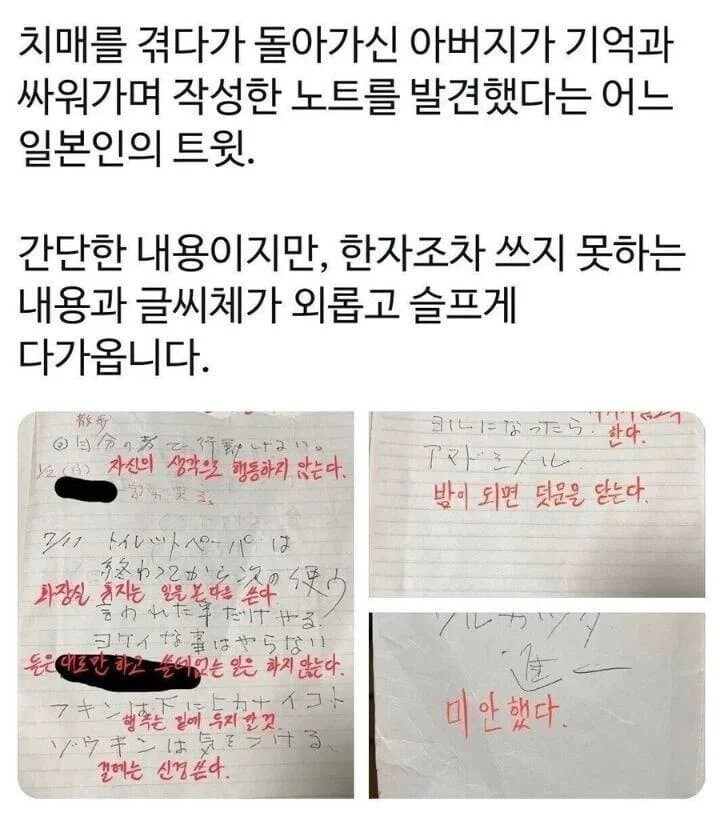 치매를 겪다가 돌아가신 아버지가 기억과
싸워가며 작성한 노트를 발견했다는 어느
일본인의 트윗.
간단한 내용이지만, 한자조차 쓰지 못하는
내용과 글씨체가 외롭고 슬프게
다가옵니다.
散歩
自分の考で行動しない。
자신의 생각으로 행동하지 않는다.
7/17 トイレットペーパは
終わってから次の使ウ
화장실 휴지는 일을 본 다음 쓴다
言われた事だけやる.
ヨケイな事はやらない
듣은 대로만 하고 쓸데없는 일은 하지 않는다.
フキンは下にヒカナイコト
행주는 밑에 두지 않 것.
ゾウキンは気をつける、
걸레는 신경쓴다.
ヨルになったら.
한다.
アマドシメル
밤이 되면 덧문을 닫는다.
進一
미안했다.